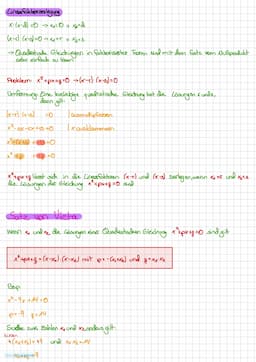 Linearfaktorzerlegung
x · (x-2) = 0 → x₁=0 v x₂=2
(x-r) (x-s)=0 → x₁=r v x₂=s
→ Quadratische Gleichungen in faktorisierter Form sind mit dem Satz vom Nullprodukt
sehr einfach zu lösen!
Problem: x²+px+q=0 → (x-r) (x-s)=0
Umformung: Eine beliebige quadratische Gleichung hat die Lösungen r und s,
dann gilt:
(x-r) (x-s) = 0 | ausmultiplizieren
x² - sx - rx + rs = 0 | x ausklammern
x²
x²
x²+px+q lässt sich in die Linearfaktoren (x-r) und (x-s) zerlegen, wenn x₁=r und x₂=s
die Lösungen der Gleichung x²+px+q=0 sind.
Satz von Vieta
Wenn x₁ und x₂ die Lösungen einer Quadratischen Gleichung x²+px+q=0 sind gilt:
x²+px+q = (x-x₁) (x-x₂) mit p = -(x₁+x₂) und q = x₁·x₂
Bsp:
x² - 9x + 14 = 0
p = -9 q = 14
Suche zwei Zahlen x₁ und x₂, sodass gilt:
und x₁·x₂=14